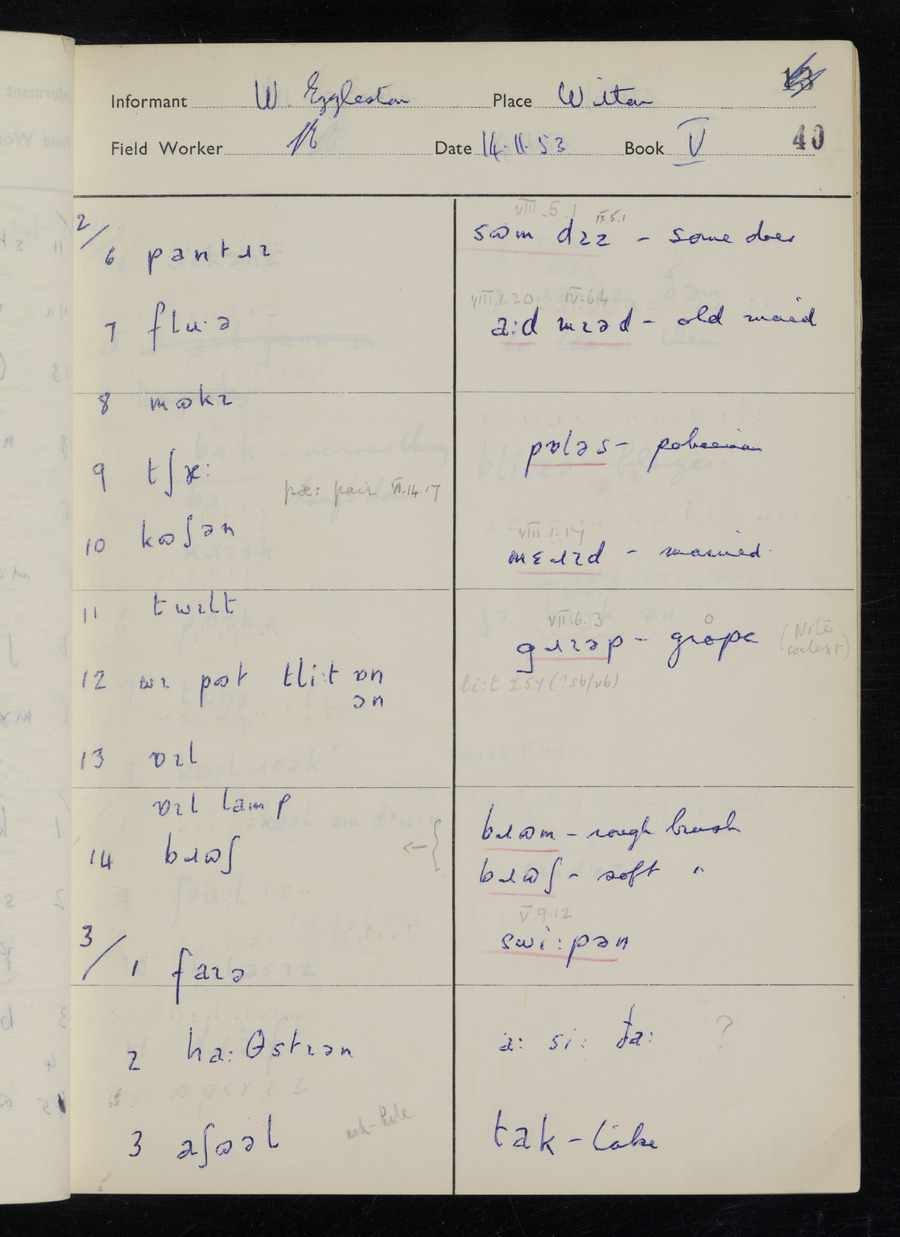 Informant W. Eggleston Place Witton 13
Field Worker Date 14.11.53 Book V 40
2/
6 pantɹɪ
7 flɯ·ə
8 mɷkɪ
9 tʃɛ:
pɛ: pair VI.14.17
10 kɷʃən
11 twɪlt
12 wɪ pɷt tli:t ɒn
ən
13 ɒɪl
ɒɪl lamp
14 bɹɷʃ
3/
1 faɪə
2 ha:θstɪən
3 aʃɷəl ash-hole
VIII.5.1 IX.5.1
sɷm dɪz - some does
VIII.1.20 IV.6.4
a:d mɪəd - old maid
pɒləs - policeman
VIII.1.17
mɛɹɪd - married
VII.6.3
gɹɪəp - grope (Note context)
li:t I.5.4 (? sb/vb)
bɹɷm - rough brush
bɹɷʃ - soft "
V.9.12
swi:pən
a: si: ða: ?
tak - take